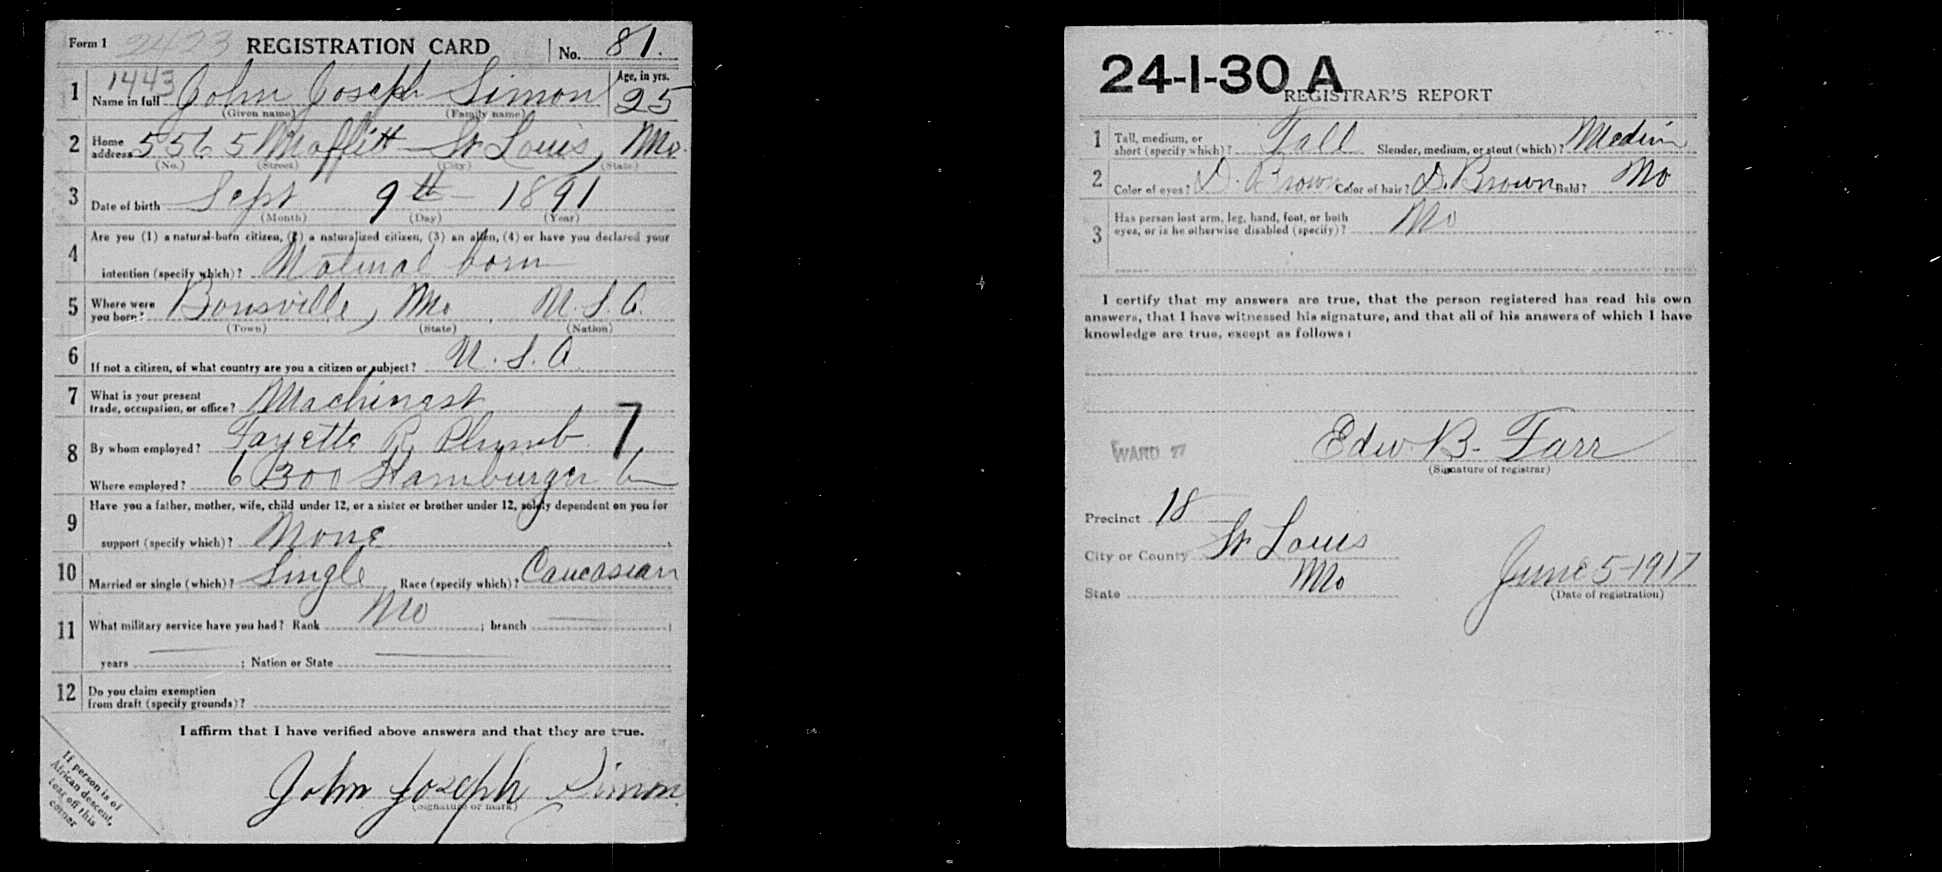 Form 1 2423 REGISTRATION CARD No. 81.
1 1443 Name in full John Joseph Simon Age, in yrs. 25
(Given name) (Family name)
2 Home address 5565 Maffitt St Louis, Mo.
(No.) (Street) (City) (State)
3 Date of birth Sept 9th 1891
(Month) (Day) (Year)
4 Are you (1) a natural-born citizen, (2) a naturalized citizen, (3) an alien, (4) or have you declared your
intention (specify which)? Natural born
5 Where were you born? Bonsville, Mo U.S.A.
(Town) (State) (Nation)
6 If not a citizen, of what country are you a citizen or subject? U.S.A.
7 What is your present trade, occupation, or office? Machinest
8 By whom employed? Fayette R Plumb 7
Where employed? 6300
9 Have you a father, mother, wife, child under 12, or a sister or brother under 12, solely dependent on you for
support (specify which)? None
10 Married or single (which)? Single Race (specify which)? Caucasian
11 What military service have you had? Rank No ; branch ;
years ; Nation or State
12 Do you claim exemption
from draft (specify grounds)?
I affirm that I have verified above answers and that they are true.
John Joseph Simon
(Signature or mark)
If person is of
African descent,
tear off this
corner
24-1-30 A
REGISTRAR'S REPORT
1 Tall, medium, or short (specify which)? Tall Slender, medium, or stout (which)? Medium
2 Color of eyes? D. Brown Color of hair? D. Brown Bald? No
3 Has person lost arm, leg, hand, foot, or both
eyes, or is he otherwise disabled (specify)? No
I certify that my answers are true, that the person registered has read his own
answers, that I have witnessed his signature, and that all of his answers of which I have
knowledge are true, except as follows:
Edw B. Farr
WARD 27
(Signature of registrar)
Precinct 18
City or County St Louis
State Mo June 5-1917
(Date of registration)